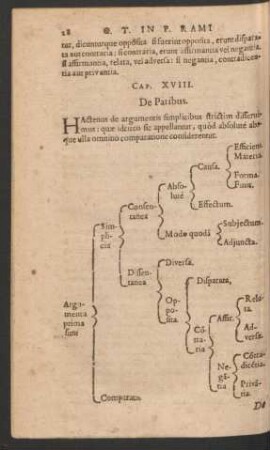 28 Q. T. IN P. RAMI
tur, dicunturque opposita si fuerint opposita, erunt disparata
aut contraria: si contraria, erunt affirmantia vel negantia.
si affirmantia, relata, vel adversa: si negantia, contradicentia
aut privantia.
CAP. XVIII.
De Paribus.
HActenus de argumentis simplicibus strictim disseruimus:
quæ idcirco sic appellantur, quòd absolutè absque
ulla omnino comparatione considerentur.
Argumenta prima sunt
Simplicia
Consentanea
Absolutè
Causa.
Efficiens
Materia.
Forma.
Finis.
Effectum.
Modo quodã
Subjectum.
Adjuncta.
Dissentanea
Diversa.
Opposita.
Disparata,
Cõtraria
Affir.
Relata.
Adversa.
Negãtia
Cõtradicẽtia.
Privãtia.
Comparata.